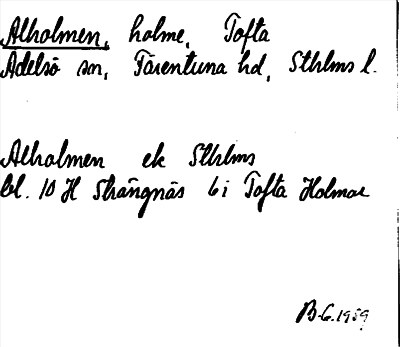 Alholmen, holme, Tofta
Adelsö sn, Färentuna hd, Sthlms l.
Alholmen ek Sthlms
bl. 10 H Strängnäs 6 i Tofta Holmar
B.G. 1959